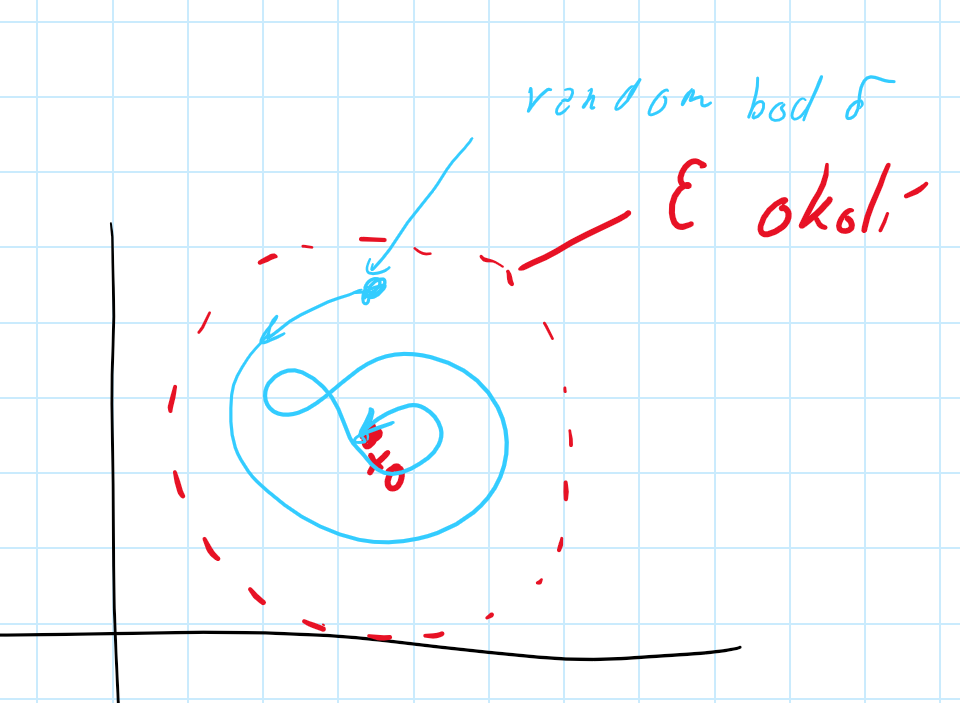 random bod δ
ε okolí
x₀